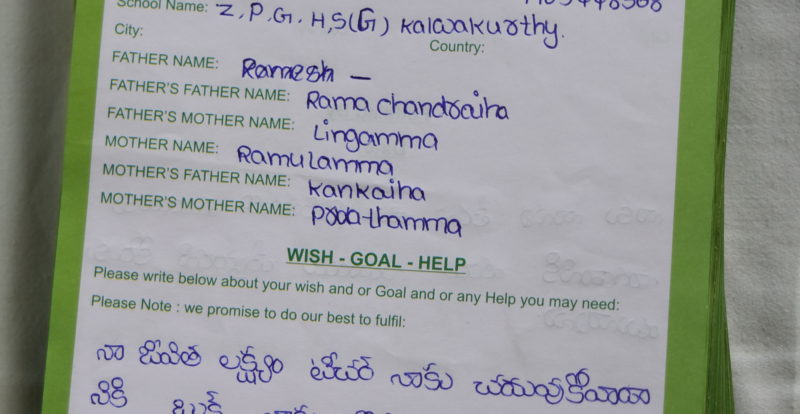 School Name: Z.P.G.H.S(G) Kalwakurthy.
City: Country:
FATHER NAME: Ramesh —
FATHER'S FATHER NAME: Rama chandraiha
FATHER'S MOTHER NAME: Lingamma
MOTHER NAME: Ramulamma
MOTHER'S FATHER NAME: Kankaiha
MOTHER'S MOTHER NAME:
WISH - GOAL - HELP
Please write below about your wish and or Goal and or any Help you may need:
Please Note : we promise to do our best to fulfil:
నా జీవిత లక్ష్యం టీచర్ నాకు